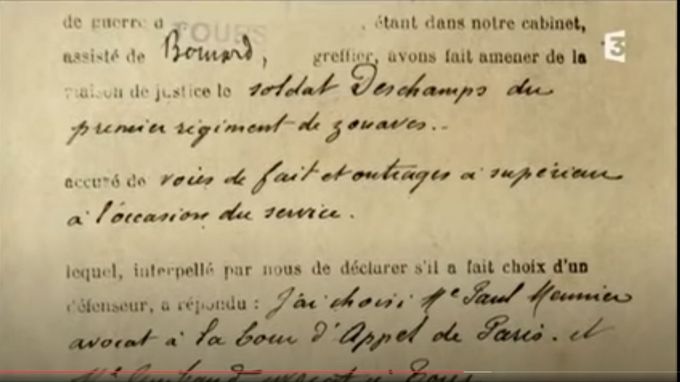 de guerre d TOURS , étant dans notre cabinet,
assisté de Bonnard, greffier, avons fait amener de la
maison de justice le soldat Deschamps du
premier régiment de zouaves.
accusé de voies de fait et outrages à supérieur
à l'occasion du service.
lequel, interpellé par nous de déclarer s'il a fait choix d'un
défenseur, a répondu : J'ai choisi Me Paul Meunier
avocat à la Cour d'Appel de Paris. et
Me avocat à Tours
3